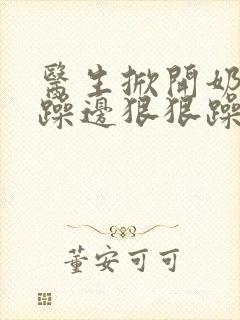 醫生掀開奶
躁邊狠狠躁
董安可可